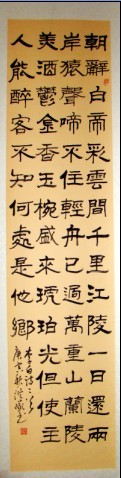 朝辭白帝彩雲間千里江陵一日還兩
岸猿聲啼不住輕舟已過萬重山蘭陵
美酒鬱金香玉椀盛來琥珀光但使主
人能醉客不知何處是他鄉
李白詩二首